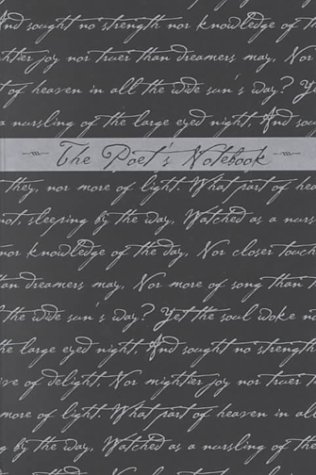 And sought no strength nor knowledge of
joy nor truer than dreamers may, Nor
t of heaven in all the wide sun's way? Y
a nursling of the large eyed night, And so
The Poet's Notebook
they, nor more of light. What part of hea
not, sleeping by the way, Watched as a nurs
nor knowledge of the day, Nor closer touch
an dreamers may, Nor more of song than t
the wide sun's way? Yet the soul woke no
he large eyed night, And sought no strength
ive of delight, Nor mightier joy nor truer t
more of light. What part of heaven in all
by the way, Watched as a nursling of the